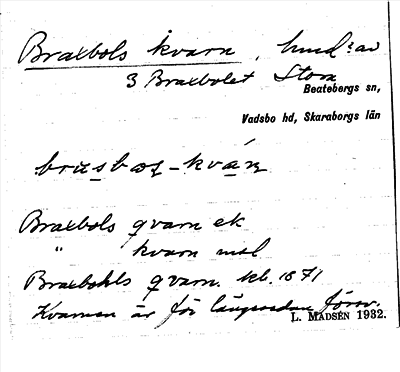 Braxbols kvarn, hmd: av
3 Braxbolet Stora
Beatebergs sn,
Vadsbo hd, Skaraborgs län
Braxbols qvarn ek
" kvarn msl
Braxbohls qvarn. kb. 1871
Kvarnen är för längesedan försv.
L. MADSÉN 1932.